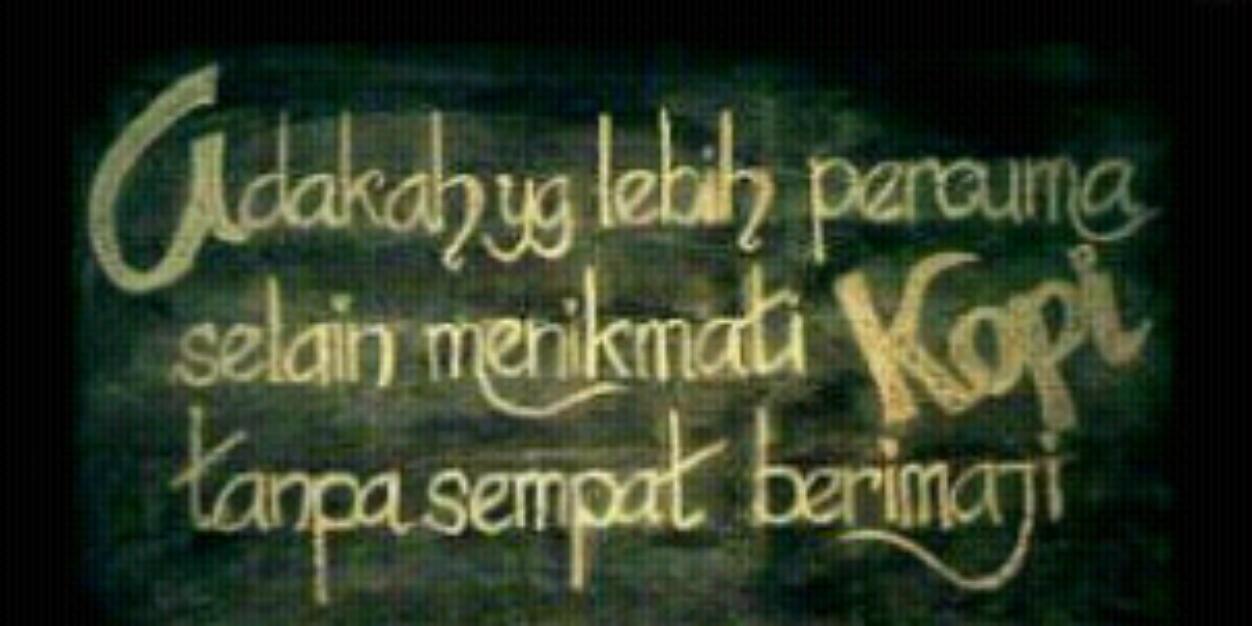 Adakah yg lebih percuma
selain menikmati Kopi
tanpa sempat berimaji